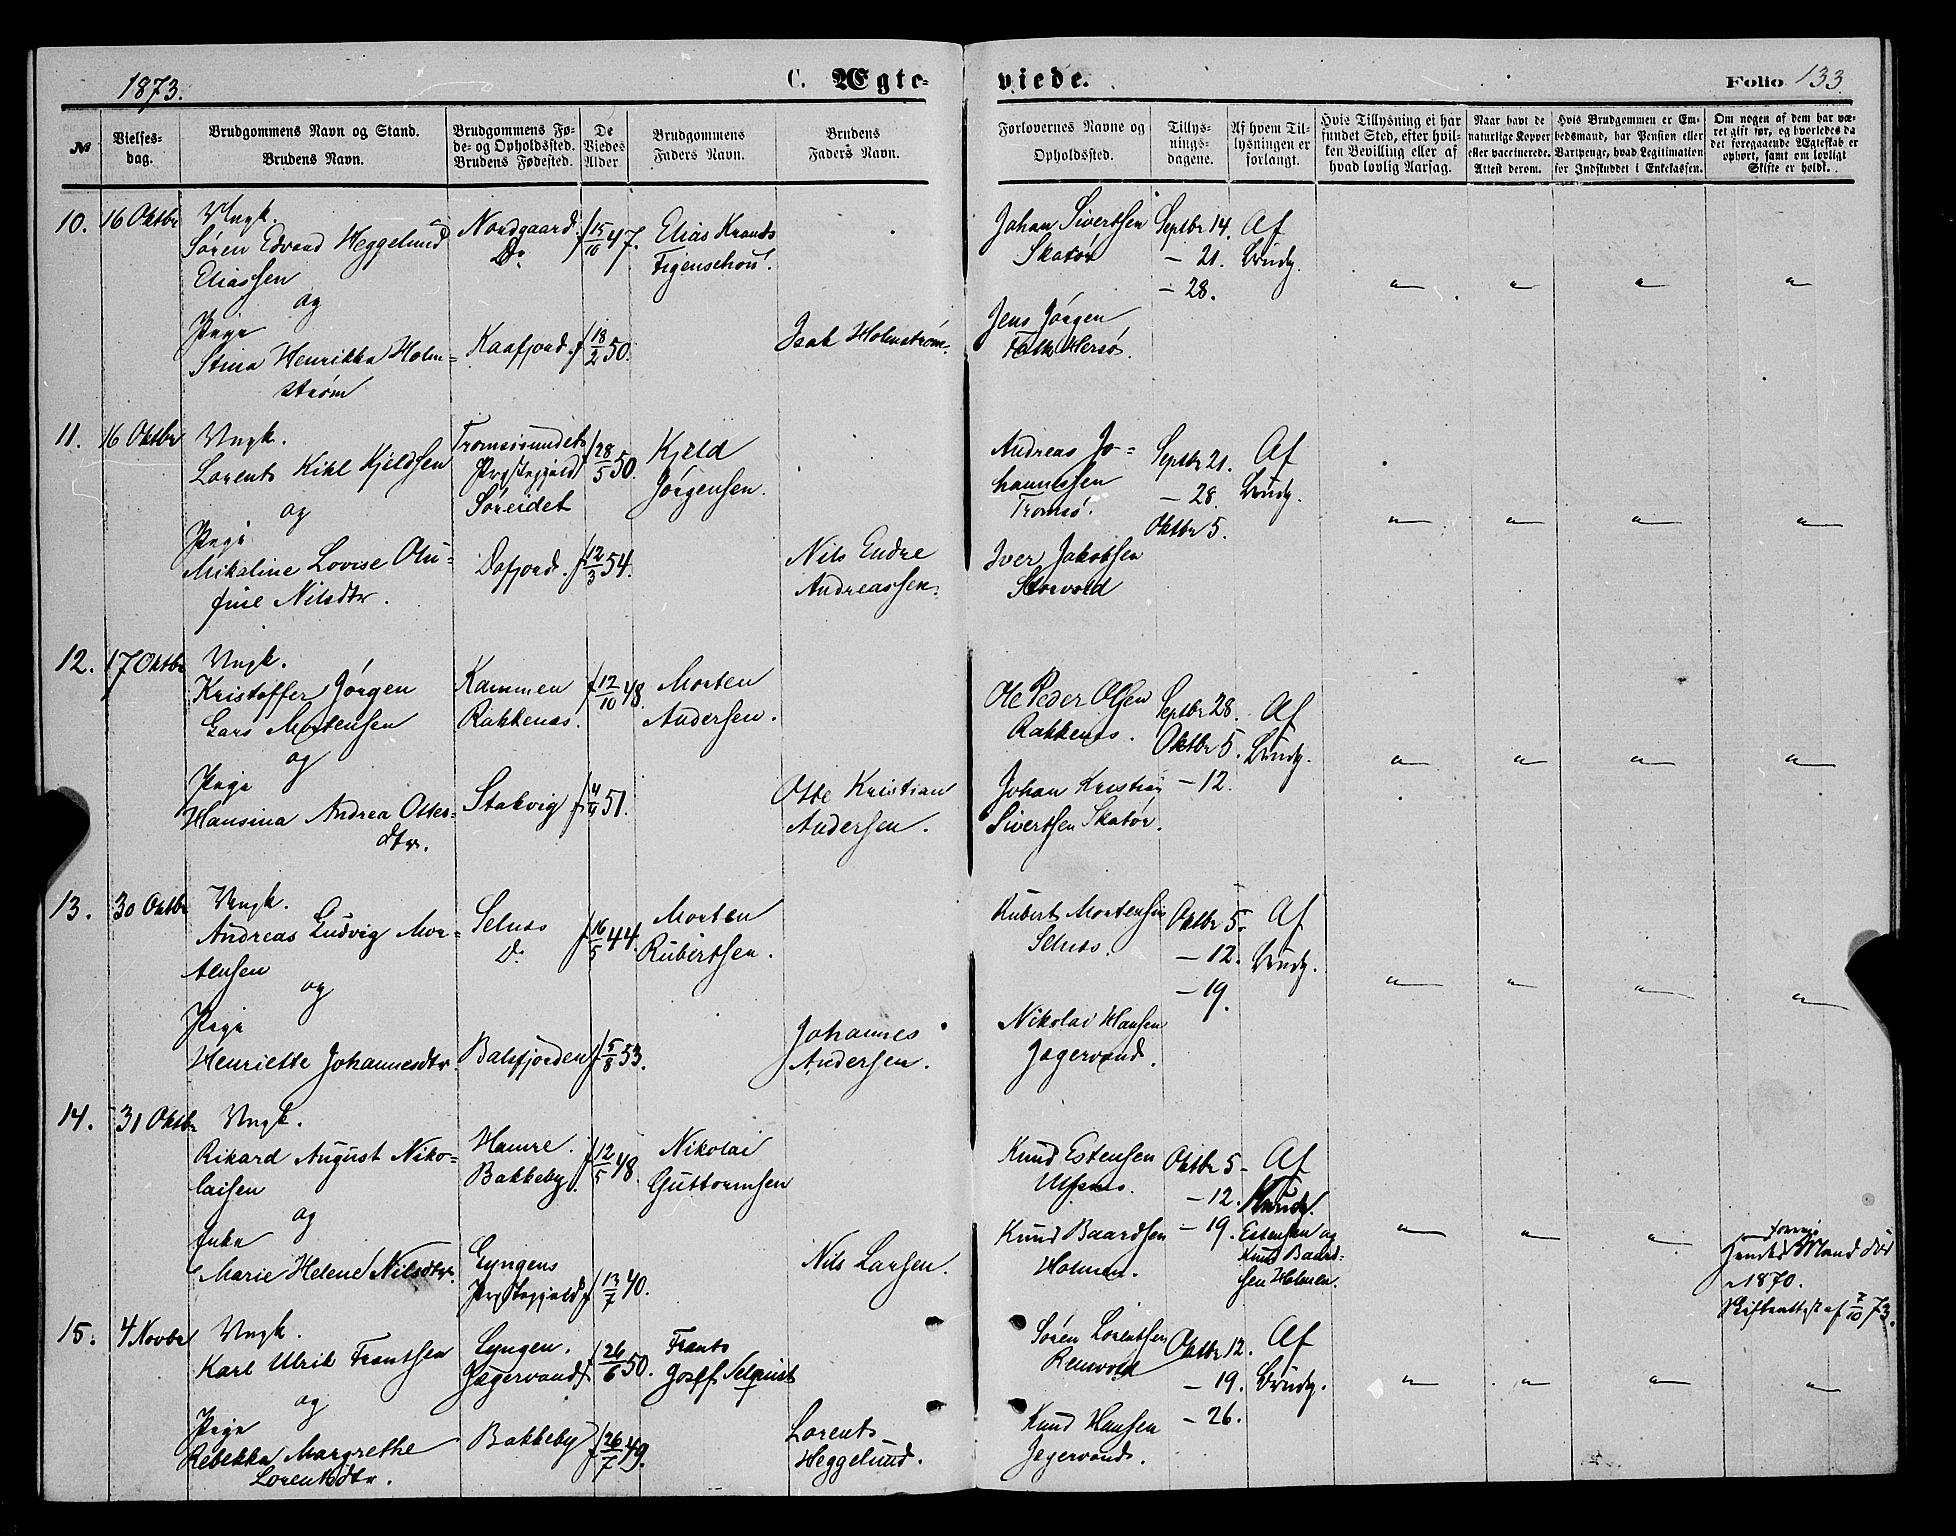 1873.
C. Ægte-
viede.
Folio 133
№
Vielses-
dag.
Brudgommens Navn og Stand.
Brudens Navn.
Brudgommens Fø-
de- og Opholdssted.
Brudens Fødested.
De
Viedes
Alder.
Brudgommens
Faders Navn.
Brudens
Faders Navn.
Forlovernes Navne og
Opholdssted.
Tillys-
nings-
dagene.
Af hvem Til-
lysningen er
forlangt.
Hvis Tillysning ei har
fundet Sted, efter hvil-
ken Bevilling eller af
hvad lovlig Aarsag.
Naar havt de
naturlige Kopper
eller vaccinerede.
Attest derom.
Hvis Brudgommen er Em-
bedsmand, har Pension eller
Vartpenge, hvad Legitimation
for Indskuddet i Enkekassen.
Om nogen af dem har væ-
ret gift før, og hvorledes da
det foregaaende Ægteskab er
ophørt, samt om lovligt
Skifte er holdt.
10. 16 Oktbr
Ungk.
Søren Edvard Heggelund
Eliassen
og
Pige
Stina Henrikka Holm=
strøm
Nordgaard.
Do
Kaafjord.
f 15/10 47.
f 18/2 50.
Elias Krants
Figenschou.
Isak Holmstrøm.
Johan Sivertsen
Skatør
Jens Jørgen
Falk Hersø.
Septbr 14.
— 21.
— 28.
Af
Brudg.
11. 16 Oktbr
Ungk.
Lorents Kihl Kjeldsen
og
Pige
Mikaline Lovise Olu=
fine Nilsdtr.
Tromsøsundets
Præstegjeld
Søreidet
Dafjord.
f 28/5 50.
f 12/3 54.
Kjeld
Jørgensen.
Nils Endre
Andreassen.
Andreas Jo=
hannessen
Tromsø.
Iver Jakobsen
Storvold
Septbr 21.
— 28.
Oktbr 5.
Af
Brudg.
12. 17 Oktbr
Ungk.
Kristoffer Jørgen
Gars Mortensen
og
Pige
Hansina Andrea Ottes=
dtr.
Kammen
Rakkenæs.
Stakvig
f 12/10 48.
51.
Morten
Andersen.
Otte Kristian
Andersen.
Ole Peder Olsen
Rakkenæs.
Johan Kristian
Sivertsen Skatør.
Septbr 28.
Oktbr 5.
— 12.
Af
Brudg.
13. 30 Oktbr
Ungk.
Andreas Ludvig Mor=
tensen
og
Pige
Henriette Johannesdtr.
Selnæs
Do
Balsfjorden
f 16/5 44.
f 5/8 53.
Morten
Rubertsen.
Johannes
Andersen.
Rubert Mortensen
Selnæs.
Nikolai Hansen
Jægervand.
Oktbr 5.
— 12.
— 19.
Af
Brudg.
14. 31 Oktbr
Ungk.
Rikard August Niko=
laisen
og
Enke
Marie Helene Nilsdtr.
Hamre.
Bakkeby.
Lyngens
Præstegjeld
f 12/5 48.
f 13/7 40.
Nikolai
Guttormsen
Nils Larsen.
Knud Estensen
Ulfsnæs.
Knud Baardsen
Holmen.
Oktbr 5
— 12.
— 19.
Af
Knud
Estensen og
Knud Baard-
sen Holmen.
forrige
Hendes Mand død
1870.
Skifteattest af 7/10 73.
15. 4 Novbr
Ungk.
Karl Ulrik Frantsen
og
Pige
Rebekka Margrethe
Lorentsdtr.
Lyngen.
Jægervand
Bakkeby
f 26/6 50.
f 26/7 49.
Frants
Josef Selquist
Lorents
Heggelund.
Søren Lorentsen
Renvold
Knud Hansen
Jægervand.
Oktbr 12.
— 19.
— 26.
Af
Brudg.